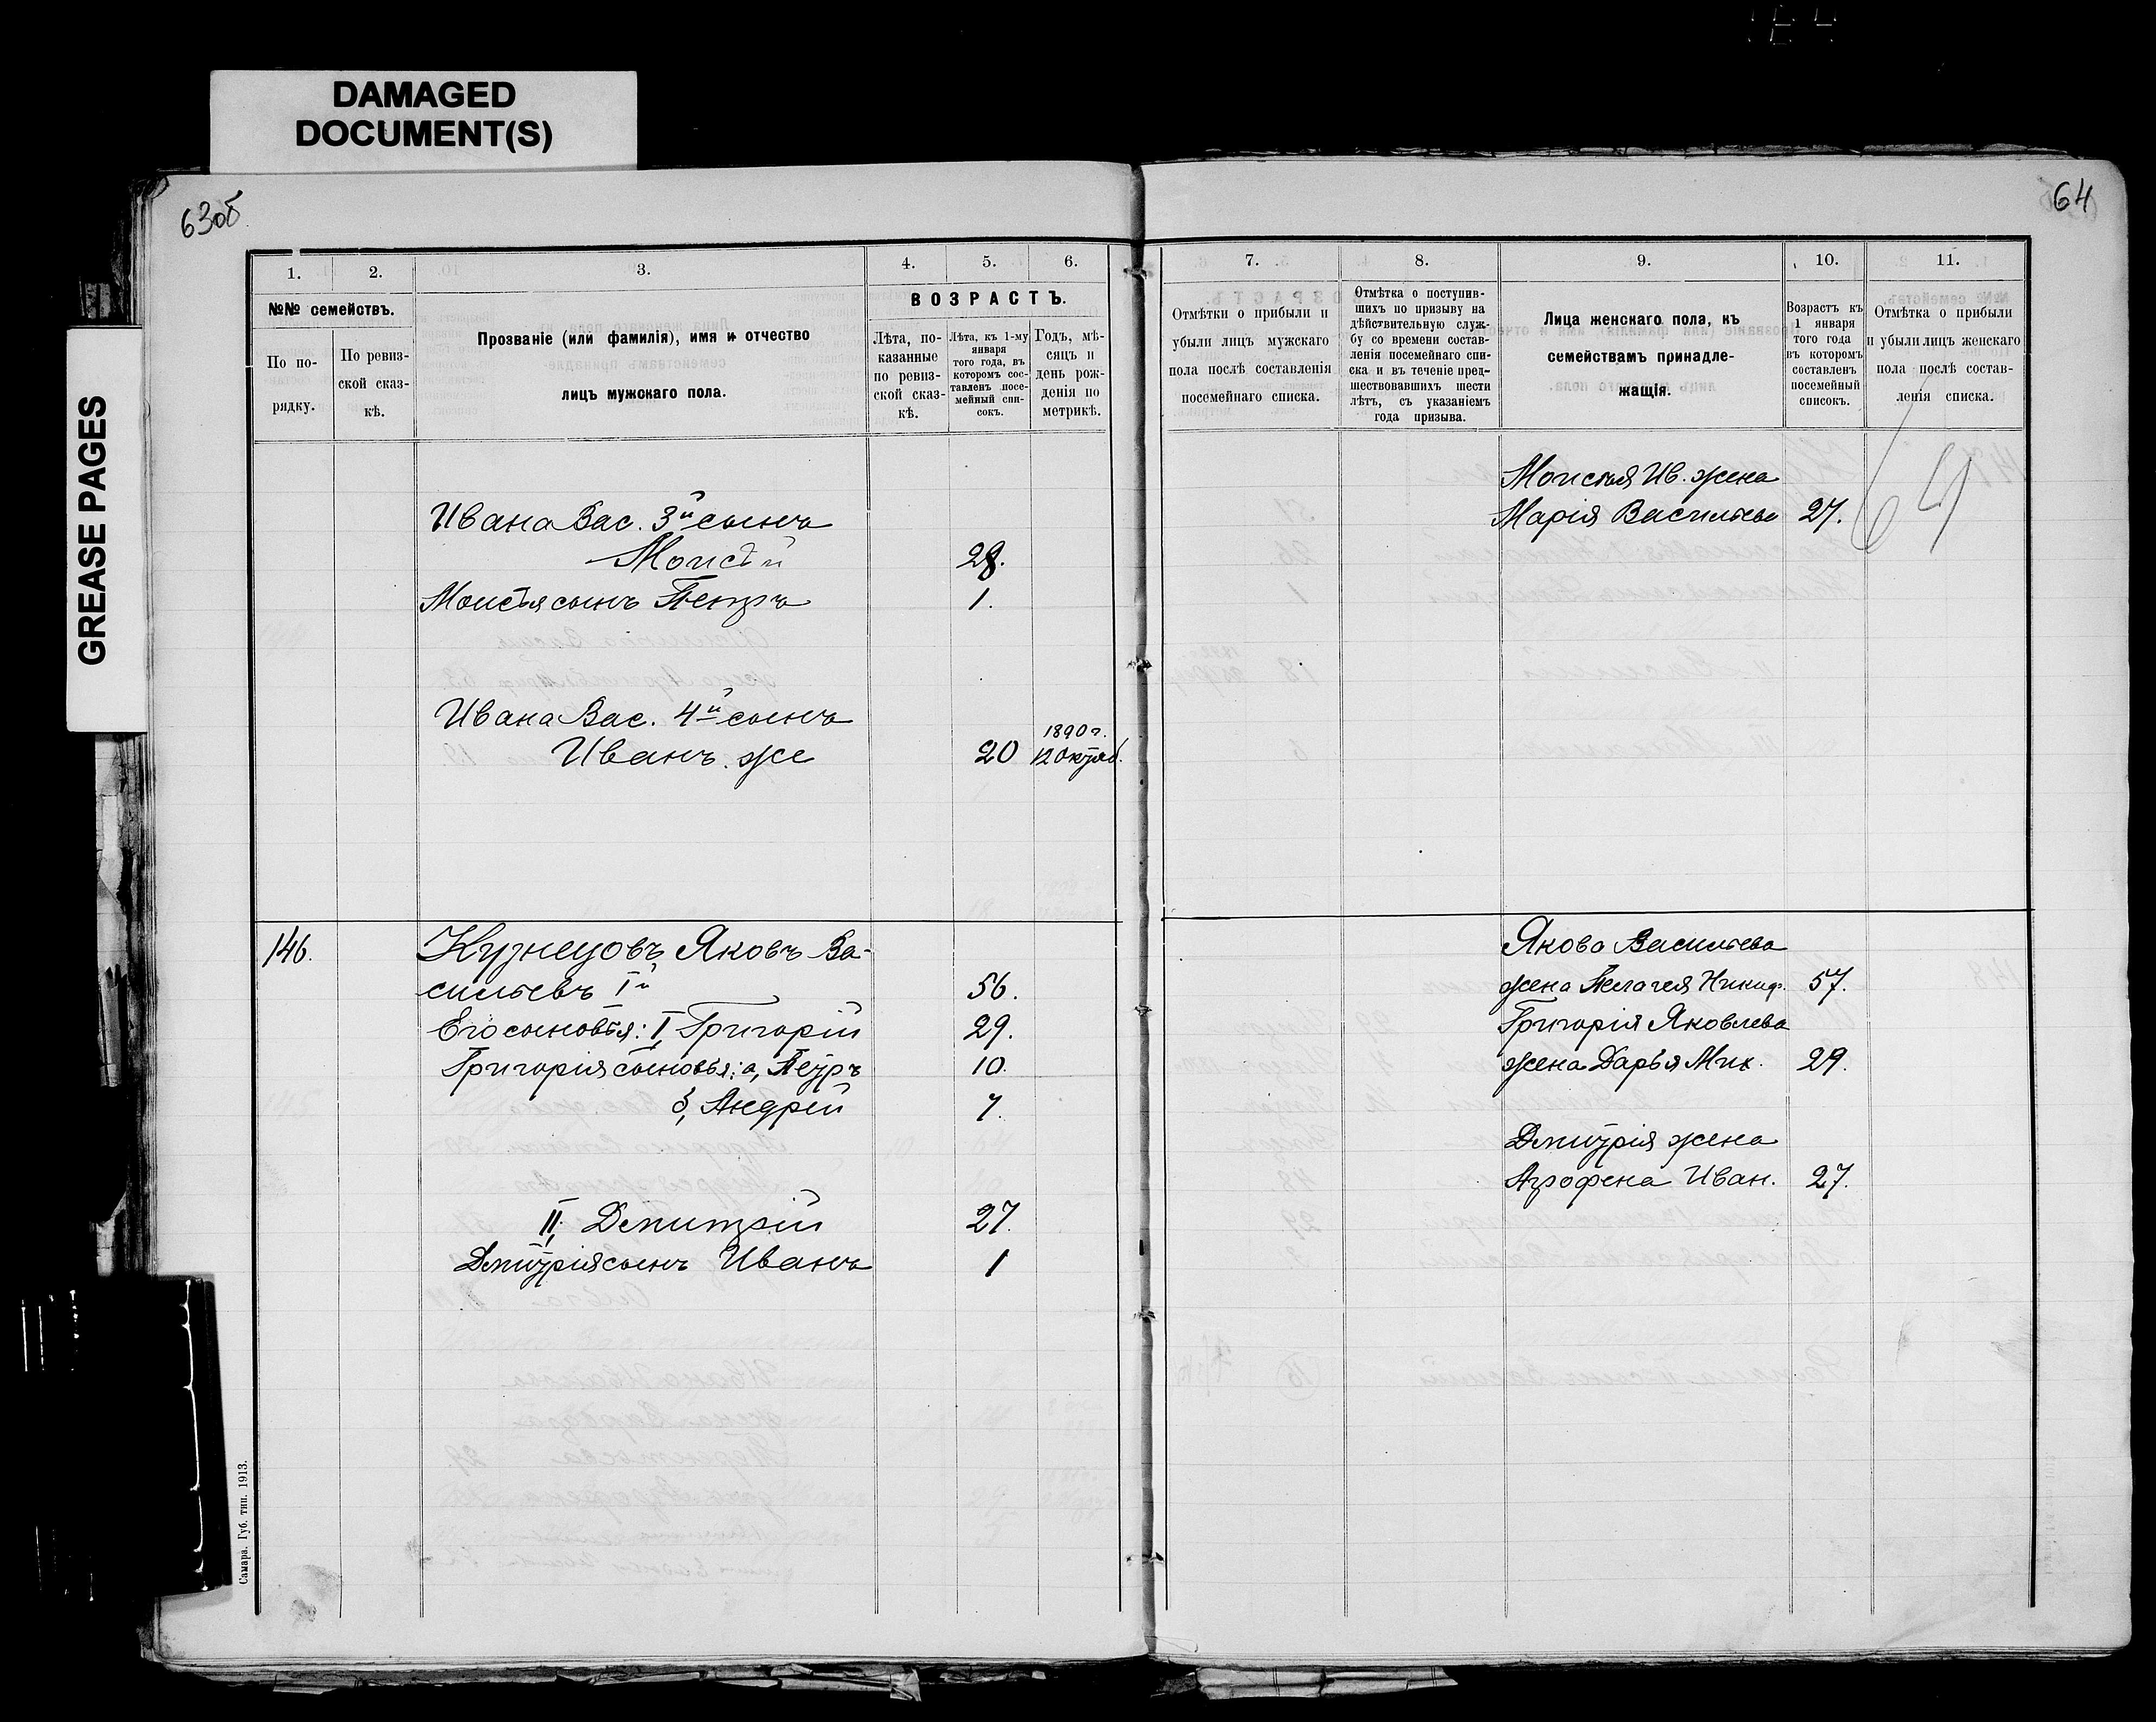 DAMAGED
DOCUMENT(S)
GREASE PAGES
63об
64
1.
2.
3.
4.
5.
6.
№№ семействъ.
По по-
рядку.
По ревиз-
ской сказ-
кѣ.
Прозваніе (или фамилія), имя и отчество
лицъ мужскаго пола.
ВОЗРАСТЪ.
Лѣта, по-
казанные
по ревиз-
ской сказ-
кѣ.
Лѣта, къ 1-му
января
того года, въ
которомъ сос-
тавленъ посе-
мейный спи-
сокъ.
Годъ, мѣ-
сяцъ и
день рож-
денія по
метрикѣ.
Ивана Вас. 3й сынъ
Моисѣй 28.
Моисѣя сынъ Петръ 1.
Ивана Вас. 4й сынъ
1890 г.
Иванъ же 20 12 Октяб.
146. Кузнецовъ Яковъ Ва-
сильевъ 1й 56.
Его сыновья: I, Григорій 29.
Григорія сыновья: а, Петръ 10.
б, Андрей 7.
II, Дмитрій 27.
Дмитрія сынъ Иванъ 1
Самара. Губ. тип. 1913.
7.
8.
9.
10.
11.
Отмѣтки о прибыли и
убыли лицъ мужскаго
пола послѣ составленія
посемейнаго списка.
Отмѣтка о поступив-
шихъ по призыву на
дѣйствительную служ-
бу со времени состав-
ленія посемейнаго спи-
ска и въ теченіе пред-
шествовавшихъ шести
лѣтъ, съ указаніемъ
года призыва.
Лица женскаго пола, къ
семействамъ принадле-
жащія.
Возрастъ къ
1 января
того года
въ которомъ
составленъ
посемейный
списокъ.
Отмѣтка о прибыли
и убыли лицъ женскаго
пола послѣ состав-
ленія списка.
64
Моисея Ив. жена
Марія Васильева 27.
Якова Васильева
жена Пелагея Никиф. 57.
Григорія Яковлева
жена Дарья Мих. 29.
Дмитрія жена
Аграфена Иван. 27.